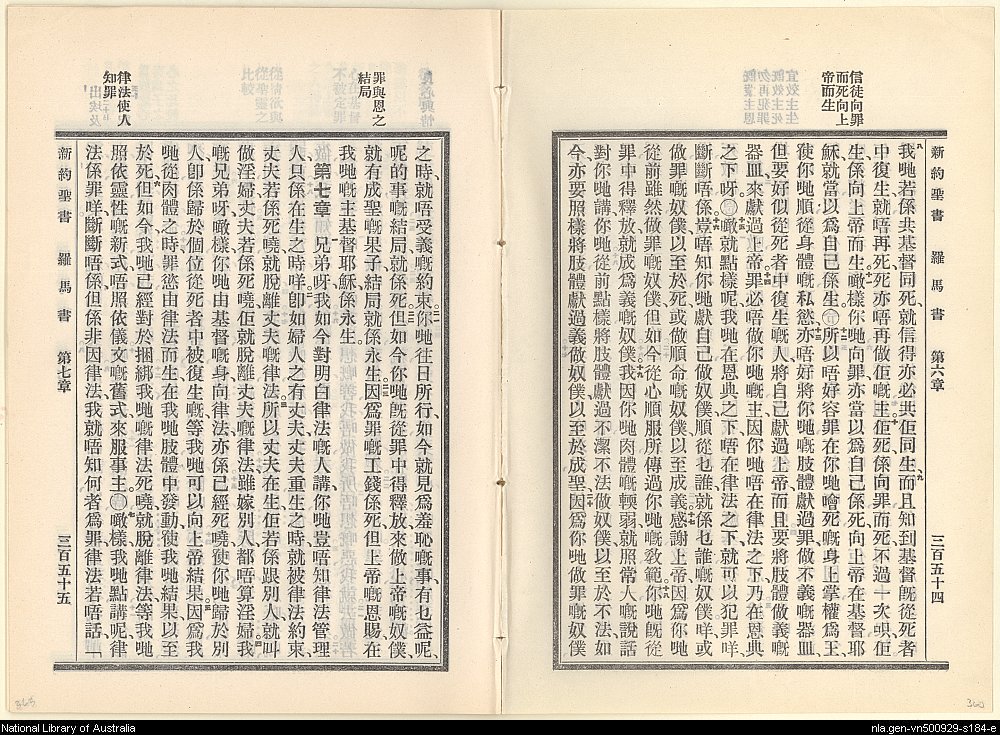 新約聖書 羅馬書 第六章 三百五十四
信徒向罪
而死向上
帝而生
我哋若係共基督同死、就信得亦必共佢同生、而且知到基督既從死者
中復生、就唔再死、死亦唔再做佢嘅主。佢死、係向罪而死、不過一次、佢
生、係向上帝而生。噉樣你哋向罪亦當以爲自己係死、向上帝在基督耶
穌、就當以爲自己係生。所以唔好容罪在你哋噲死嘅身上掌權爲王、
使你哋順從身體嘅私慾、亦唔好將你哋嘅肢體獻過罪、做不義嘅器皿、
但要好似從死者中復生嘅人、將自己獻過上帝、而且要將肢體做義嘅
器皿、來獻過上帝。罪必唔做你哋嘅主、因你哋唔在律法之下、乃在恩典
之下呀。噉就點樣呢、我哋在恩典之下、唔在律法之下、就可以犯罪咩、
斷斷唔係。豈唔知你哋獻自己做奴僕順從乜誰、就係乜誰嘅奴僕咩、或
做罪嘅奴僕以至於死、或做順命嘅奴僕以至成義。感謝上帝因爲你哋
從前雖然做罪嘅奴僕、但如今從心順服所傳過你哋嘅敎範、你哋既從
罪中得釋放、就成爲義嘅奴僕。我因你哋肉體嘅輭弱、就照常人嘅說話
對你哋講、你哋從前點樣將肢體獻過不潔不法、做奴僕以至於不法、如
今亦要照樣將肢體獻過義、做奴僕以至於成聖。因爲你哋做罪嘅奴僕
罪與恩之
結局
律法使人
知罪
之時、就唔受義嘅約束。你哋往日所行、如今就見爲羞恥嘅事、有乜益呢、
呢的事嘅結局、就係死。但如今你哋既從罪中得釋放、來做上帝嘅奴僕、
就有成聖嘅果子、結局就係永生。因爲罪嘅工錢係死、但上帝嘅恩賜、在
我哋嘅主基督耶穌、係永生。
第七章 兄弟呀、我如今對明白律法嘅人講、你哋豈唔知律法管理
人、只係在生之時咩。卽如婦人之有丈夫、丈夫重生之時、就被律法約束、
丈夫若係死嘵、就脫離丈夫嘅律法。所以丈夫在生、佢若係跟別人、就叫
做淫婦、丈夫若係死嘵、佢就脫離丈夫嘅律法、雖嫁別人、都唔算淫婦。我
嘅兄弟呀、噉樣、你哋由基督嘅身、向律法亦係已經死嘵、使你哋歸於別
人、卽係歸於個位從死者中被復生嘅、等我哋可以向上帝結果。因爲我
哋從肉體之時、罪慾由律法而生、在我哋肢體中發動、使我哋結果以至
於死。但如今我哋已經對於捆綁我哋嘅律法死嘵、就脫離律法、等我哋
照依靈性嘅新式、唔照依儀文嘅舊式、來服事主。噉樣我哋點講呢、律
法係罪咩、斷斷唔係、但係非因律法、我就唔知何者爲罪、律法若唔話、
新約聖書 羅馬書 第七章 三百五十五
365
360
National Library of Australia
nla.gen-vn500929-s184-e